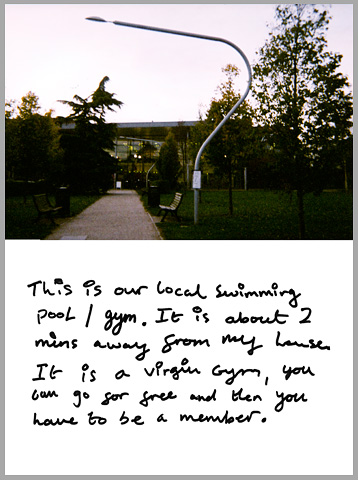 This is our local swimming
pool / gym. It is about 2
mins away from my house.
It is a virgin Gym, you
can go for free and then you
have to be a member.